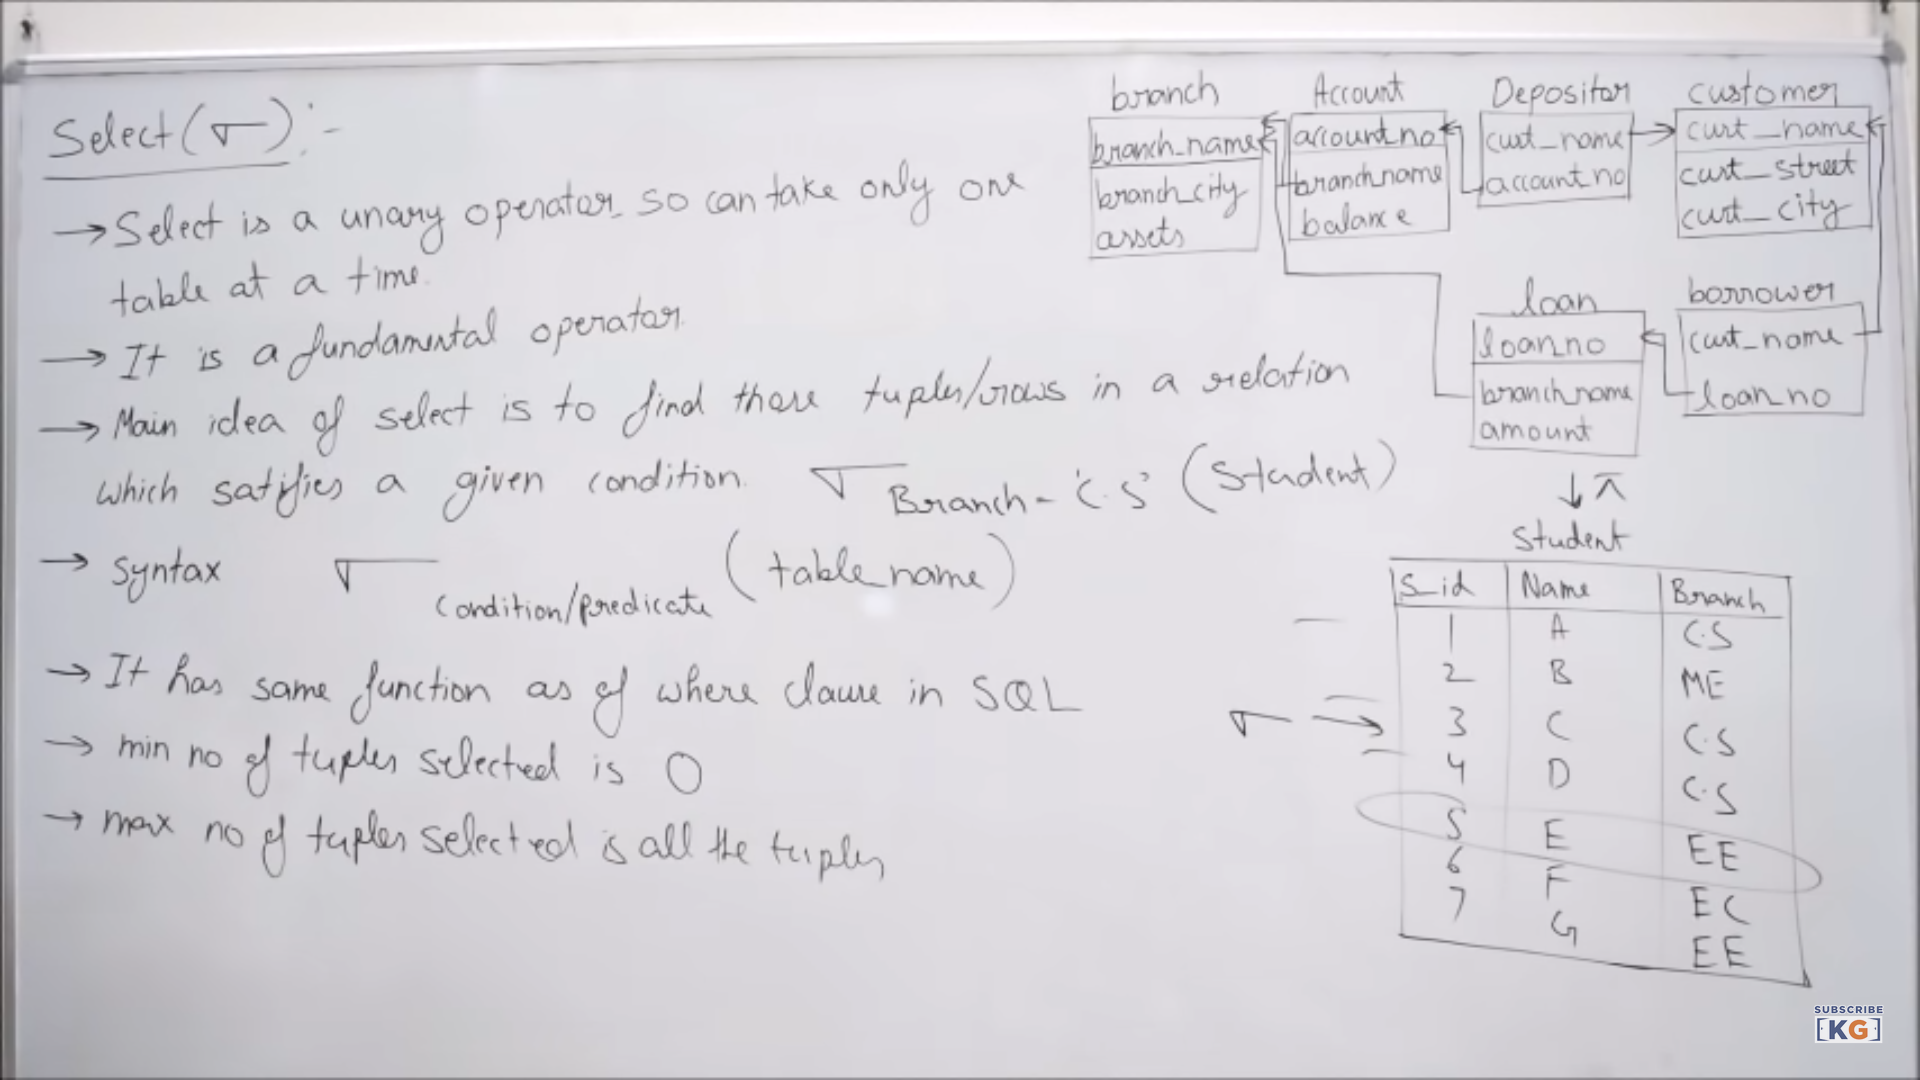 Select (σ) :-
→ Select is a unary operator so can take only one
table at a time.
→ It is a fundamental operator.
→ Main idea of select is to find those tuples/rows in a relation
which satisfies a given condition. σ Branch = 'C.S' (Student)
→ syntax σ condition/predicate (table_name)
→ It has same function as of where clause in SQL
→ min no of tuples selected is 0
→ max no of tuples selected is all the tuples
branch
branch_name
branch_city
assets
Account
account_no
branch_name
balance
Depositor
cust_name
account_no
customer
cust_name
cust_street
cust_city
loan
loan_no
branch_name
amount
borrower
cust_name
loan_no
↓ π
Student
S_id Name Branch
1 A C.S
2 B ME
σ → 3 C C.S
4 D C.S
5 E EE
6 F EC
7 G EE
SUBSCRIBE
[KG]